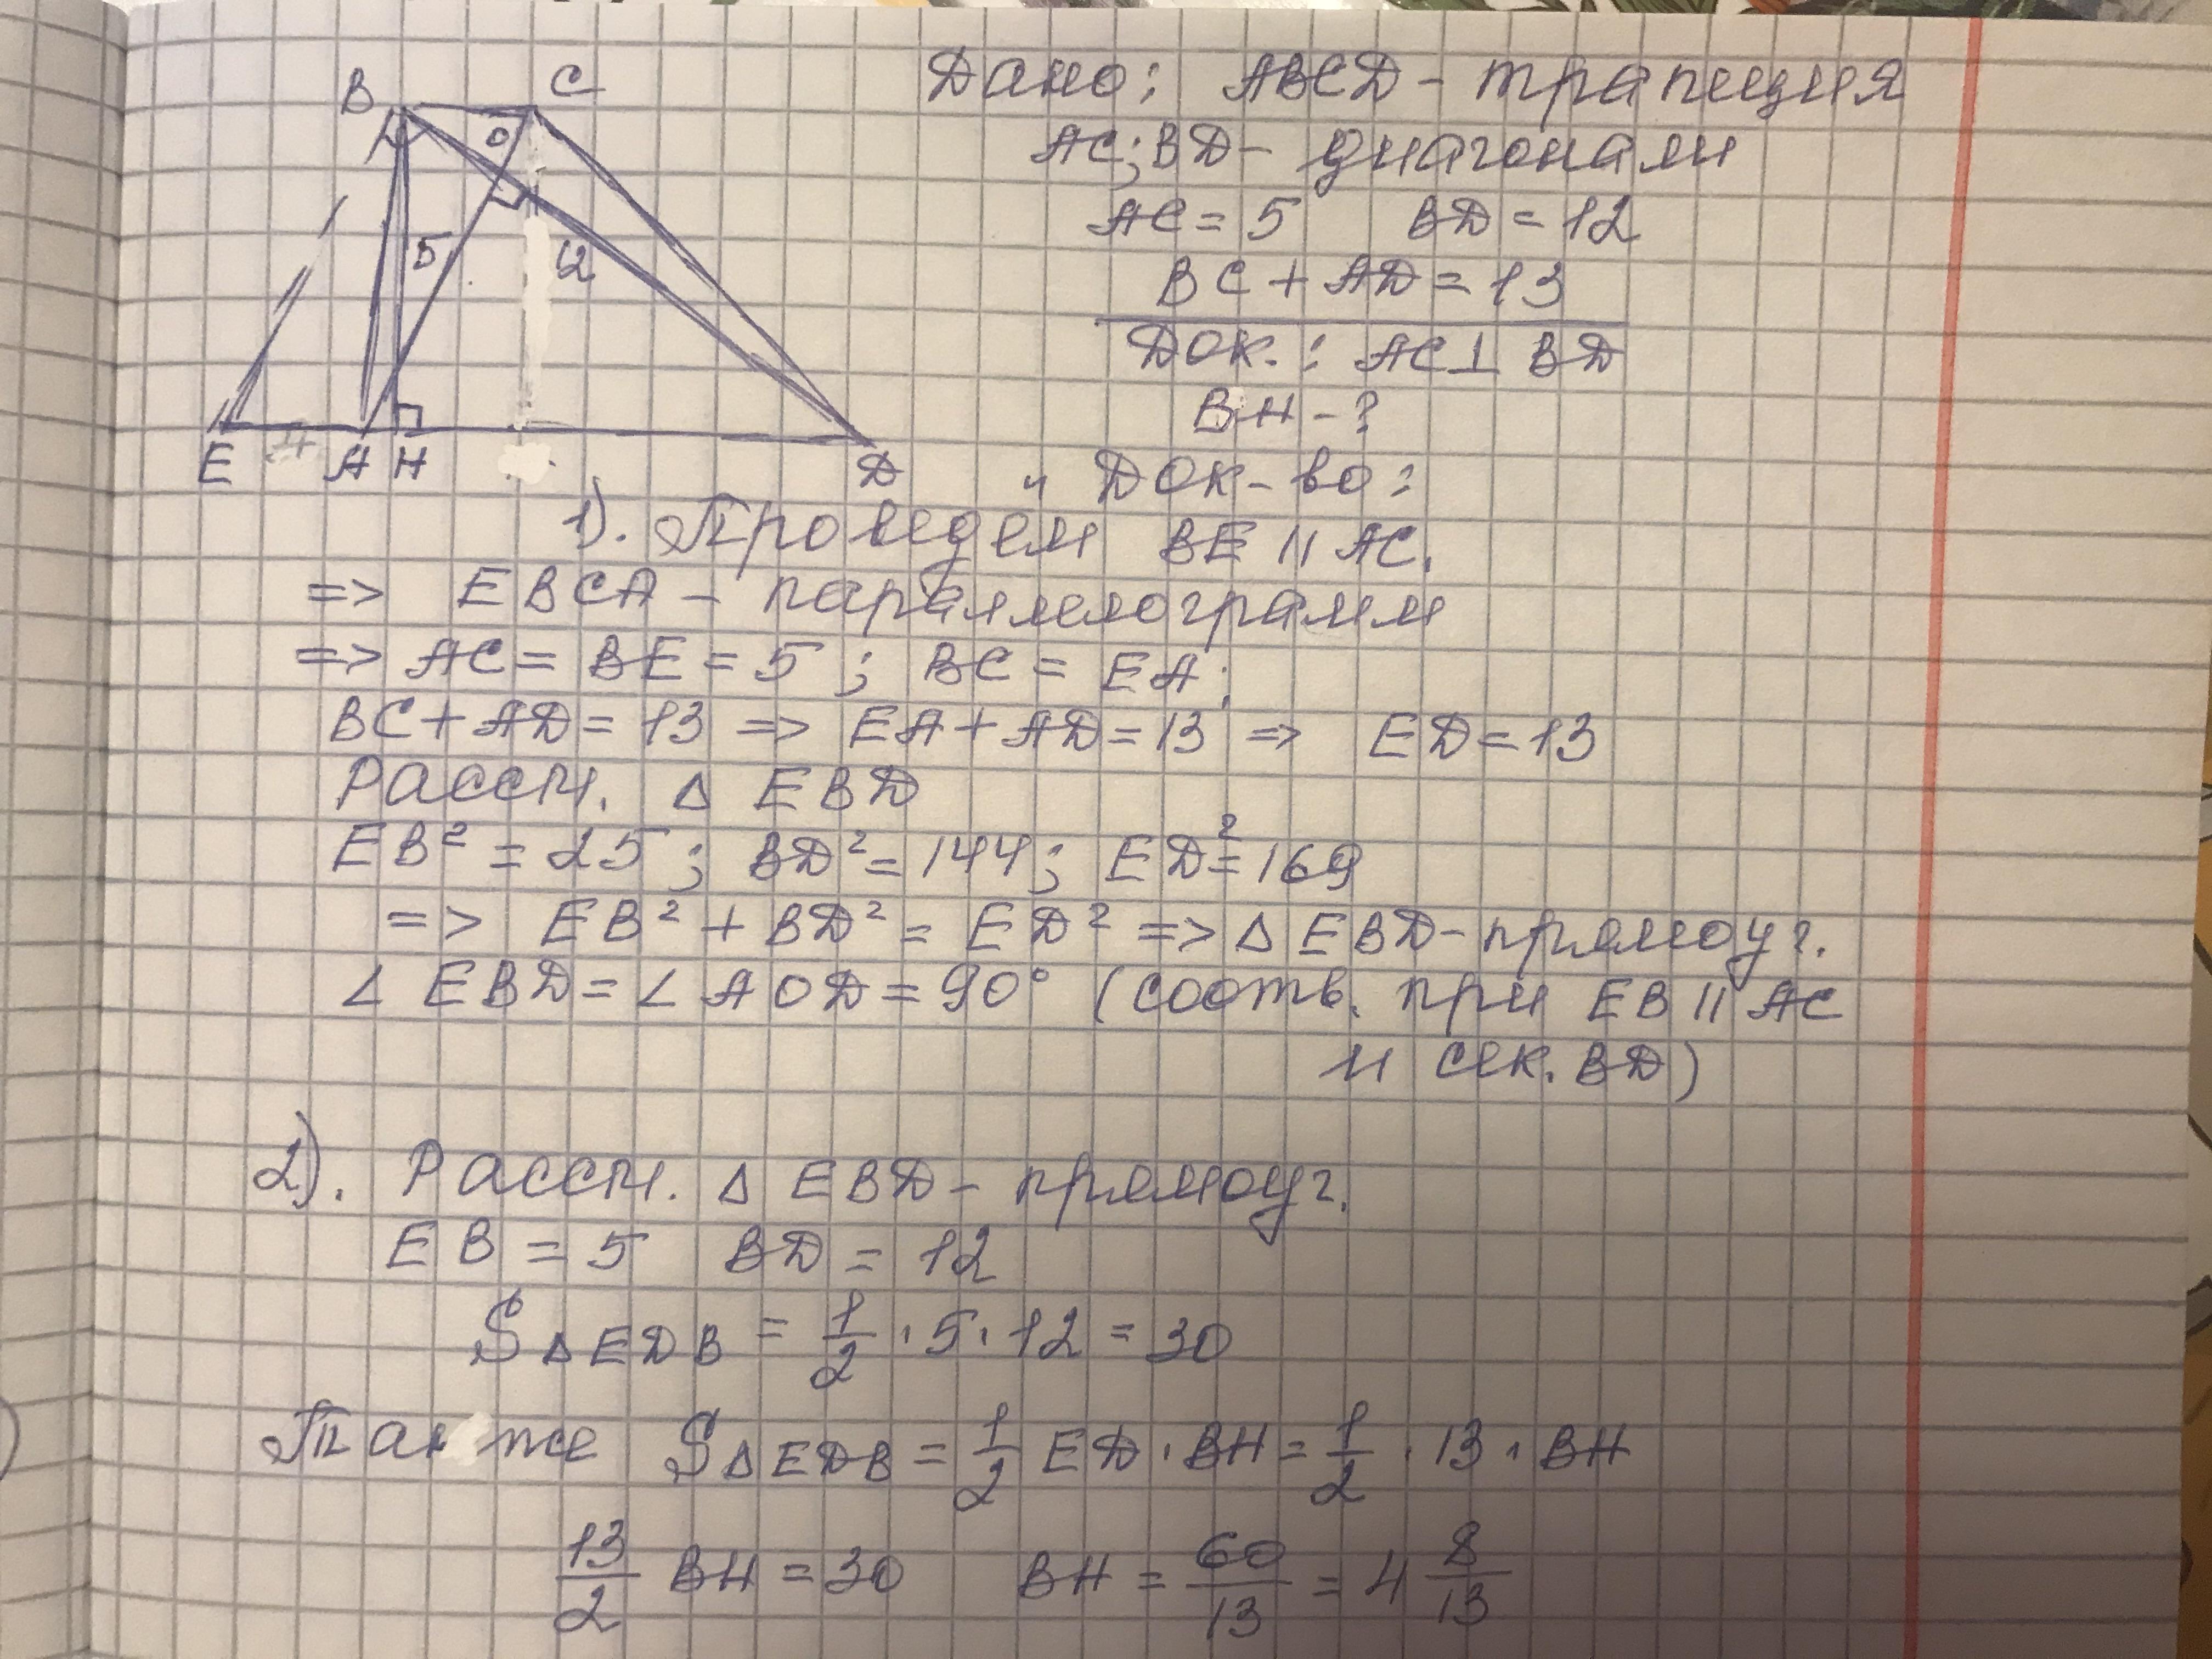 B C
O
5 12
E A H D
Дано: ABCD - трапеция
AC; BD - диагонали
AC = 5 BD = 12
BC + AD = 13
Док.: AC ⊥ BD
BH - ?
Док-во:
1). Проведем BE || AC.
=> EBCA - параллелограмм
=> AC = BE = 5; BC = EA;
BC + AD = 13 => EA + AD = 13 => ED = 13
Рассм. Δ EBD
EB² = 25; BD² = 144; ED² = 169
=> EB² + BD² = ED² => Δ EBD - прямоуг.
∠ EBD = ∠ AOD = 90° (соотв. при EB || AC
и сек. BD)
2). Рассм. Δ EBD - прямоуг.
EB = 5 BD = 12
S Δ EDB = 1/2 · 5 · 12 = 30
Также S Δ EDB = 1/2 ED · BH = 1/2 · 13 · BH
13/2 BH = 30 BH = 60/13 = 4 8/13